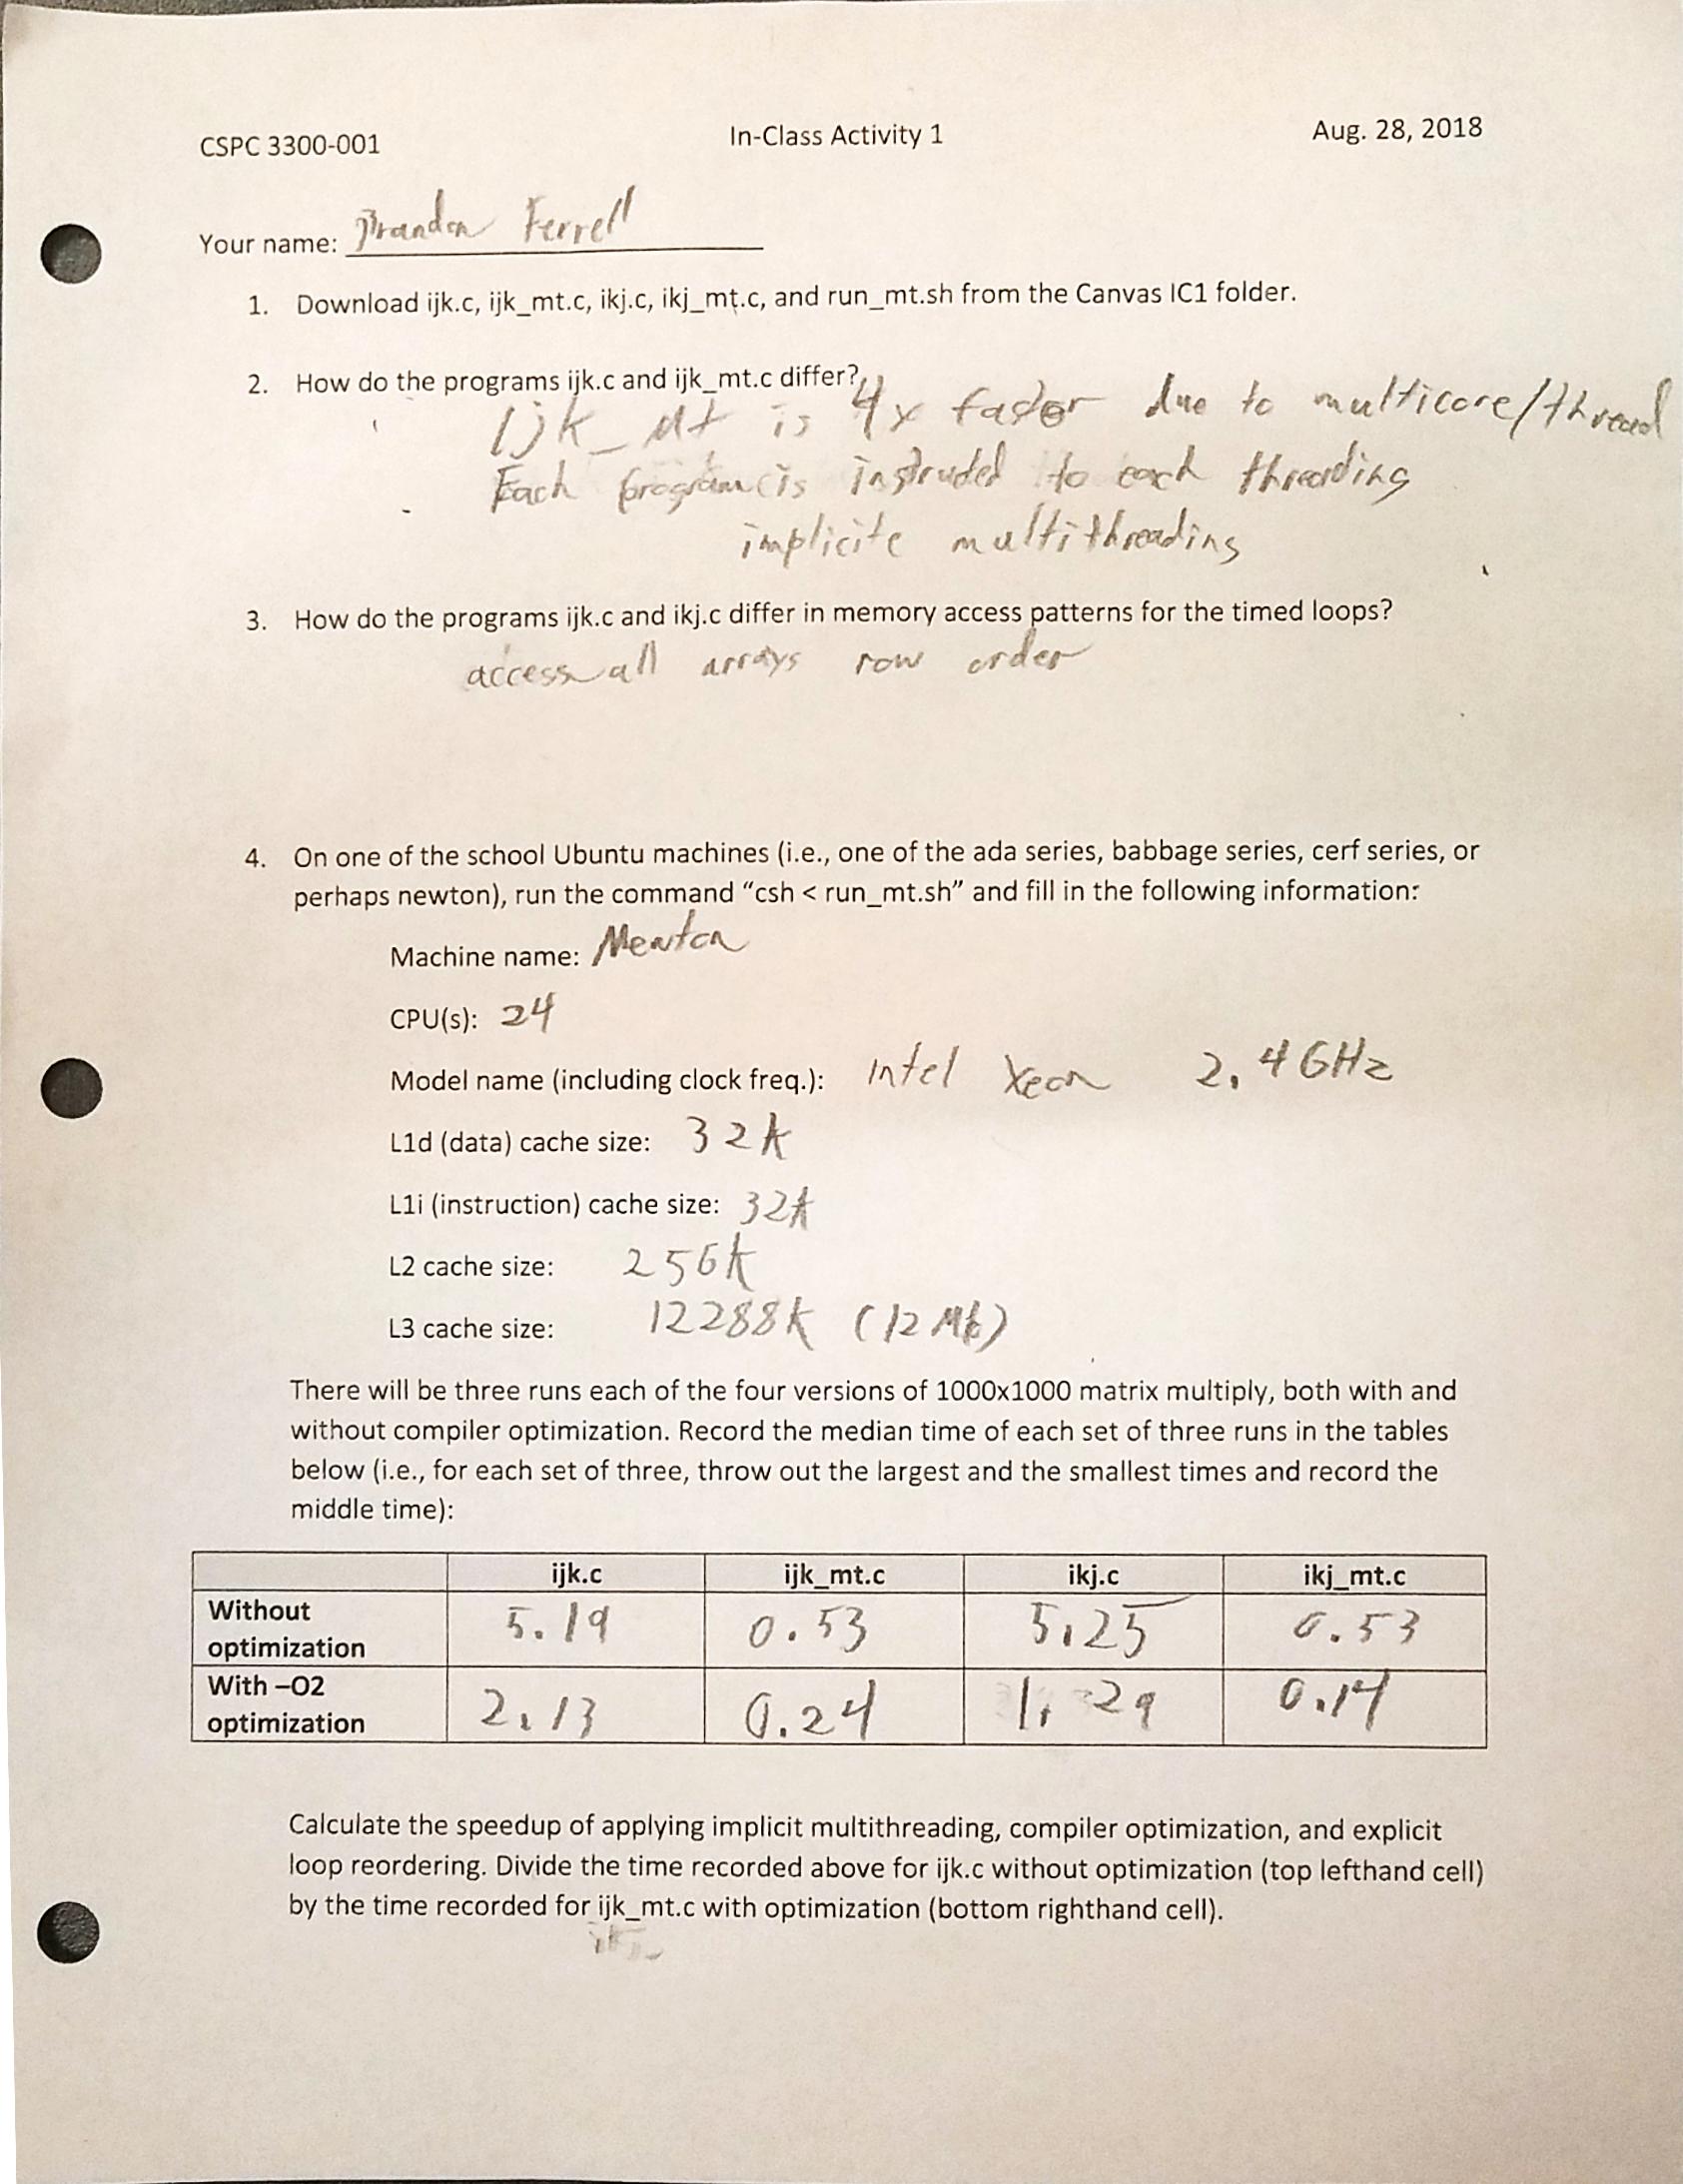 CSPC 3300-001 In-Class Activity 1 Aug. 28, 2018
Your name: Brandon Ferrell
1. Download ijk.c, ijk_mt.c, ikj.c, ikj_mt.c, and run_mt.sh from the Canvas IC1 folder.
2. How do the programs ijk.c and ijk_mt.c differ?
ijk_Mt is 4x faster due to multicore/thread
Each program is instructed to each threading
implicite multithreading
3. How do the programs ijk.c and ikj.c differ in memory access patterns for the timed loops?
access all arrays row order
4. On one of the school Ubuntu machines (i.e., one of the ada series, babbage series, cerf series, or
perhaps newton), run the command “csh < run_mt.sh” and fill in the following information:
Machine name: Newton
CPU(s): 24
Model name (including clock freq.): Intel Xeon 2.4 GHz
L1d (data) cache size: 32k
L1i (instruction) cache size: 32k
L2 cache size: 256k
L3 cache size: 12288k (12 Mb)
There will be three runs each of the four versions of 1000x1000 matrix multiply, both with and
without compiler optimization. Record the median time of each set of three runs in the tables
below (i.e., for each set of three, throw out the largest and the smallest times and record the
middle time):
ijk.c ijk_mt.c ikj.c ikj_mt.c
Without optimization 5.19 0.53 5.25 0.53
With –O2 optimization 2.13 0.24 1.29 0.14
Calculate the speedup of applying implicit multithreading, compiler optimization, and explicit
loop reordering. Divide the time recorded above for ijk.c without optimization (top lefthand cell)
by the time recorded for ijk_mt.c with optimization (bottom righthand cell).